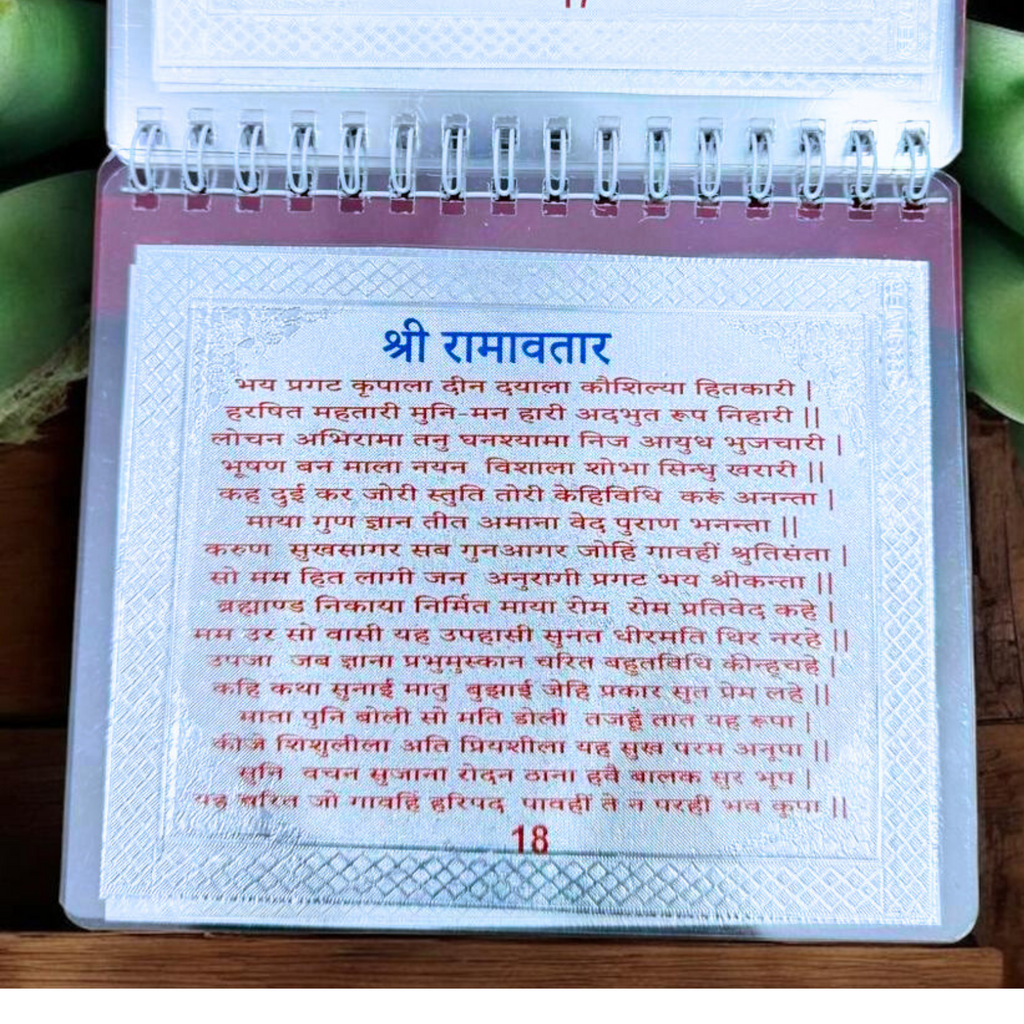 17
श्री रामावतार
भय प्रगट कृपाला दीन दयाला कौशिल्या हितकारी |
हरषित महतारी मुनि-मन हारी अदभुत रूप निहारी ||
लोचन अभिरामा तनु घनश्यामा निज आयुध भुजचारी |
भूषण बन माला नयन विशाला शोभा सिन्धु खरारी ||
कह दुई कर जोरी स्तुति तोरी केहिविधि करूं अनन्ता |
माया गुण ज्ञान तीत अमाना वेद पुराण भनन्ता ||
करुण सुखसागर सब गुनआगर जोहिं गावहीं श्रुतिसंता |
सो मम हित लागी जन अनुरागी प्रगट भय श्रीकन्ता ||
ब्रह्माण्ड निकाया निर्मित माया रोम रोम प्रतिवेद कहे |
मम उर सो वासी यह उपहासी सुनत धीरमति थिर नरहे ||
उपजा जब ज्ञाना प्रभुमुस्कान चरित बहुतविधि कीन्हचहे |
कहि कथा सुनाई मातु बुझाई जेहि प्रकार सुत प्रेम लहे ||
माता पुनि बोली सो मति डोली तजहूँ तात यह रूपा |
कीजे शिशुलीला अति प्रियशीला यह सुख परम अनूपा ||
सुनि वचन सुजाना रोदन ठाना हवै बालक सुर भूप |
यह चरित जो गावहिं हरिपद पावहीं ते न परही भव कुपा ||
18